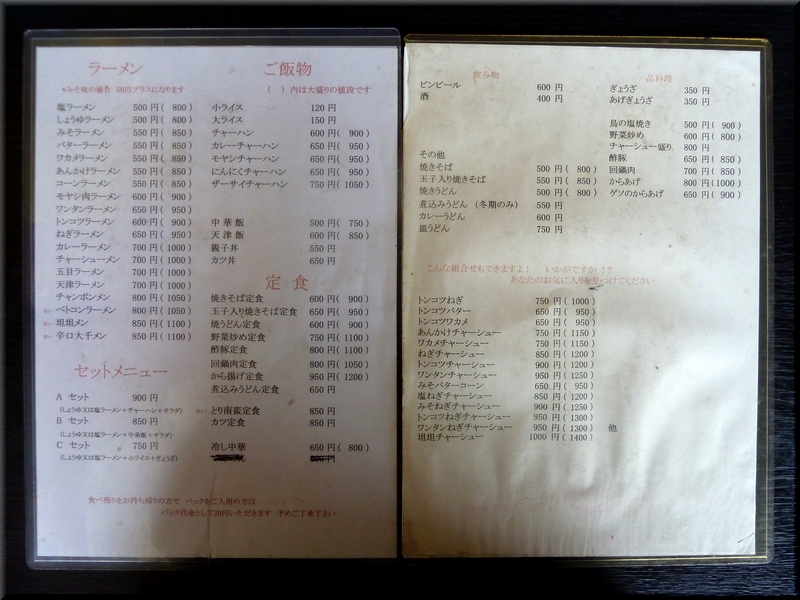 ラーメン
*みそ味の場合 50円プラスになります
塩ラーメン 500 円 ( 800 )
しょうゆラーメン 500 円 ( 800 )
みそラーメン 550 円 ( 850 )
バターラーメン 550 円 ( 850 )
ワカメラーメン 550 円 ( 850 )
あんかけラーメン 550 円 ( 850 )
コーンラーメン 550 円 ( 850 )
モヤシ肉ラーメン 600 円 ( 900 )
ワンタンラーメン 650 円 ( 950 )
トンコツラーメン 600 円 ( 900 )
ねぎラーメン 650 円 ( 950 )
カレーラーメン 700 円 (1000 )
チャーシューメン 700 円 (1000 )
五目ラーメン 700 円 (1000 )
天津ラーメン 700 円 (1000 )
チャンポンメン 800 円 (1050 )
ベトコンラーメン 800 円 (1050 )
坦坦メン 850 円 (1100 )
辛口大千メン 850 円 (1100 )
セットメニュー
A セット 900 円
(しょうゆ又は塩ラーメン+チャーハン+サラダ)
B セット 850 円
(しょうゆ又は塩ラーメン+中華飯+サラダ)
C セット 750 円
(しょうゆ又は塩ラーメン+小ライス+ぎょうざ)
ご飯物
( )内は大盛りの値段です
小ライス 120 円
大ライス 150 円
チャーハン 600 円 ( 900 )
カレーチャーハン 650 円 ( 950 )
モヤシチャーハン 650 円 ( 950 )
にんにくチャーハン 650 円 ( 950 )
ザーサイチャーハン 750 円 ( 1050 )
中華飯 500 円 ( 750 )
天津飯 600 円 ( 850 )
親子丼 550 円
カツ丼 650 円
定食
焼きそば定食 600 円 ( 900 )
玉子入り焼きそば定食 650 円 ( 950 )
焼うどん定食 600 円 ( 900 )
野菜炒め定食 750 円 (1100 )
酢豚定食 800 円 (1100 )
回鍋肉定食 800 円 (1050 )
から揚げ定食 950 円 (1200 )
煮込みうどん定食 650 円
とり南蛮定食 850 円
カツ定食 850 円
冷し中華 650 円 ( 800 )
食べ残りをお持ち帰りの方で パックをご入用の方は
パック代金として20円いただきます 予めご了承下さい
飲み物
ビンビール 600 円
酒 400 円
その他
焼きそば 500 円 ( 800 )
玉子入り焼きそば 550 円 ( 850 )
焼きうどん 500 円 ( 800 )
煮込みうどん (冬期のみ) 550 円
カレーうどん 600 円
皿うどん 750 円
一品料理
ぎょうざ 350 円
あげぎょうざ 350 円
鳥の塩焼き 500 円 ( 900 )
野菜炒め 600 円 ( 800 )
チャーシュー盛り 800 円
酢豚 650 円 ( 850 )
回鍋肉 700 円 ( 850 )
からあげ 800 円 (1000 )
ゲソのからあげ 650 円 ( 900 )
こんな組合せもできますよ! いかがですか!?
あなたのお気に入りを見つけてください
トンコツねぎ 750 円 ( 1000 )
トンコツバター 650 円 ( 950 )
トンコツワカメ 650 円 ( 950 )
あんかけチャーシュー 750 円 ( 1150 )
ワカメチャーシュー 750 円 ( 1150 )
ねぎチャーシュー 850 円 ( 1200 )
トンコツチャーシュー 900 円 ( 1200 )
ワンタンチャーシュー 950 円 ( 1250 )
みそバターコーン 650 円 ( 950 )
塩ねぎチャーシュー 850 円 ( 1200 )
みそねぎチャーシュー 900 円 ( 1250 )
トンコツねぎチャーシュー 950 円 ( 1300 )
ワンタンねぎチャーシュー 950 円 ( 1300 ) 他
坦坦チャーシュー 1000 円 ( 1400 )